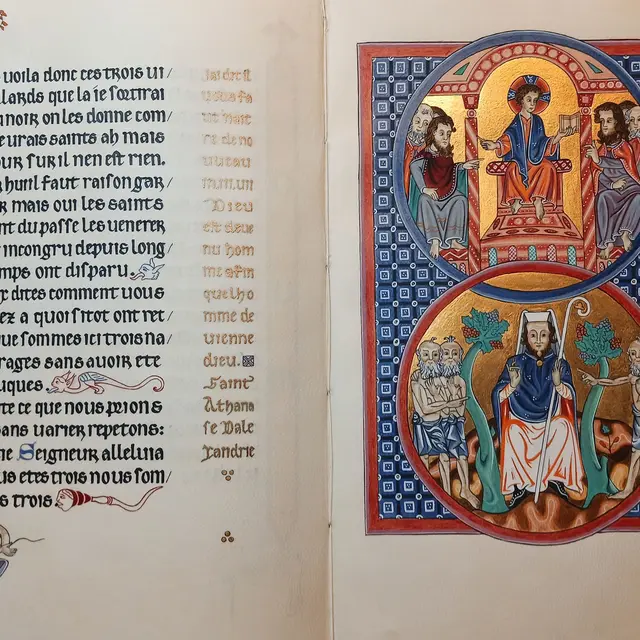 uoila donc ces trois ui/
llards que la ie sortirai
noir on les donne com/
urais saints ah mais
our sur il nen est rien.
faut raison gar/
mais oui les saints
nt du passe les uenerer
incongru depuis long/
mps ont disparu
dites comment uous
ez a quoi sitot ont ret/
ue sommes ici trois na/
rages sans auoir ete
uques
te ce que nous prions
ans uarier repetons:
ne Seigneur alleluia
us etes trois nous som/
s trois
Dieu
est deue
nu hom
me afin
que lho
mme de
uienne
dieu.
Saint
Athana
se Dale
xandrie